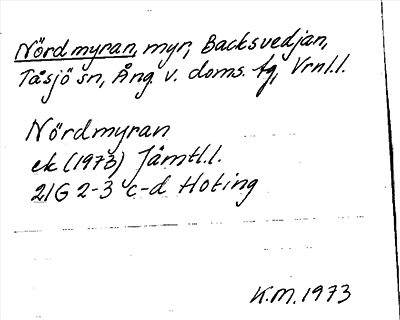 Nördmyran, myr, Backsvedjan,
Tåsjö sn, Ång. v. doms. fg, Vrnl.l.
Nördmyran
ek (1973) Jämtl.l.
21G 2-3 c-d Hoting
K.M. 1973